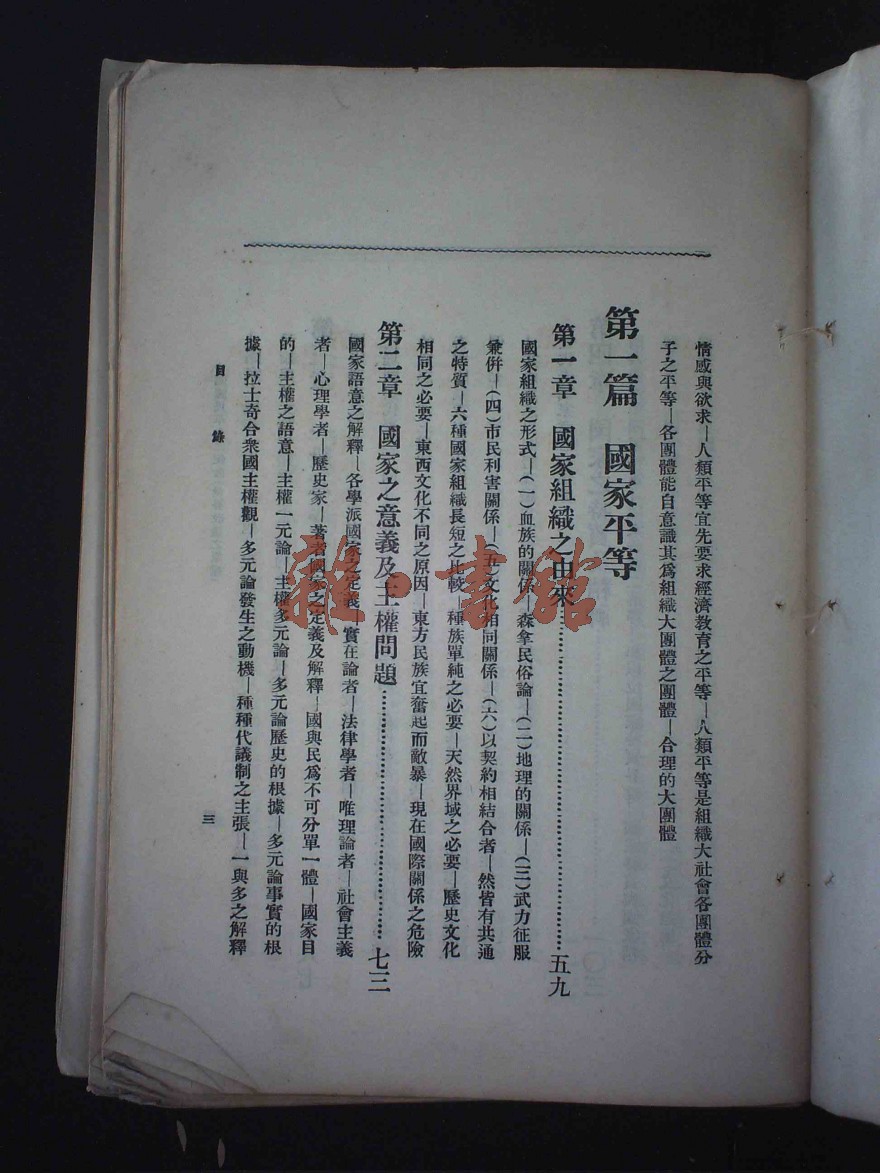 情感與欲求—人類平等宜先要求經濟教育之平等—人類平等是組織大社會各團體分
子之平等—各團體能自意識其爲組織大團體之團體—合理的大團體
第一篇　國家平等
第一章　國家組織之由來…………………………五九
國家組織之形式—(一)血族的關係—森拿民俗論—(二)地理的關係—(三)武力征服
兼併—(四)市民利害關係—(五)文化相同關係—(六)以契約相結合者—然皆有共通
之特質—六種國家組織長短之比較—種族單純之必要—天然界域之必要—歷史文化
相同之必要—東西文化不同之原因—東方民族宜奮起而敵暴—現在國際關係之危險
第二章　國家之意義及主權問題…………………………七三
國家語意之解釋—各學派國家之定義—實在論者—法律學者—唯理論者—社會主義
者—心理學者—歷史家—著者國家之定義及解釋—國與民爲不可分單一體—國家目
的—主權之語意—主權一元論—主權多元論—多元論歷史的根據—多元論事實的根
據—拉士奇合衆國主權觀—多元論發生之動機—種種代議制之主張—一與多之解釋
目錄
三
雜·書館